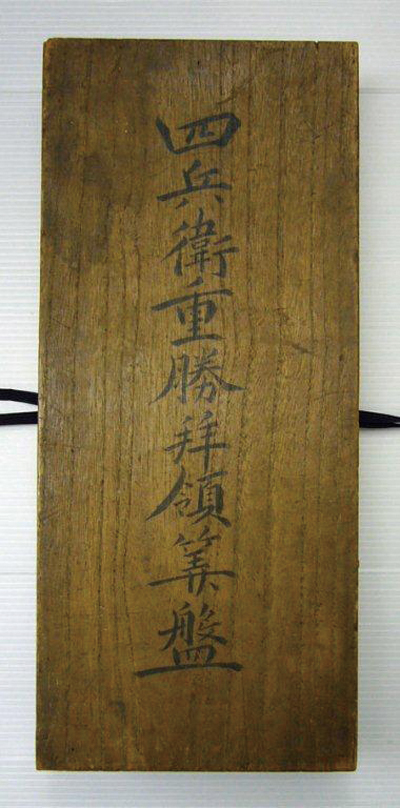 四兵衛重勝拝領筭盤